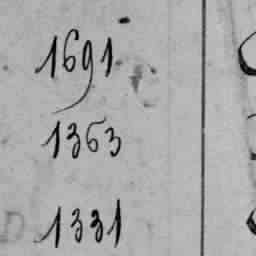 1691
1363
1331